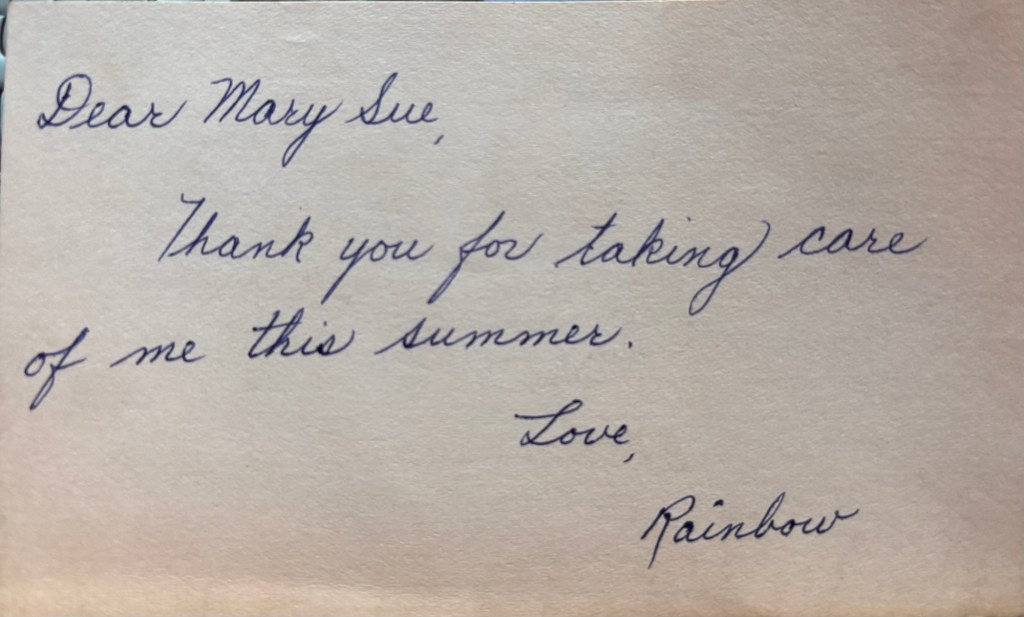 Dear Mary Sue,
Thank you for taking care
of me this summer.
Love,
Rainbow